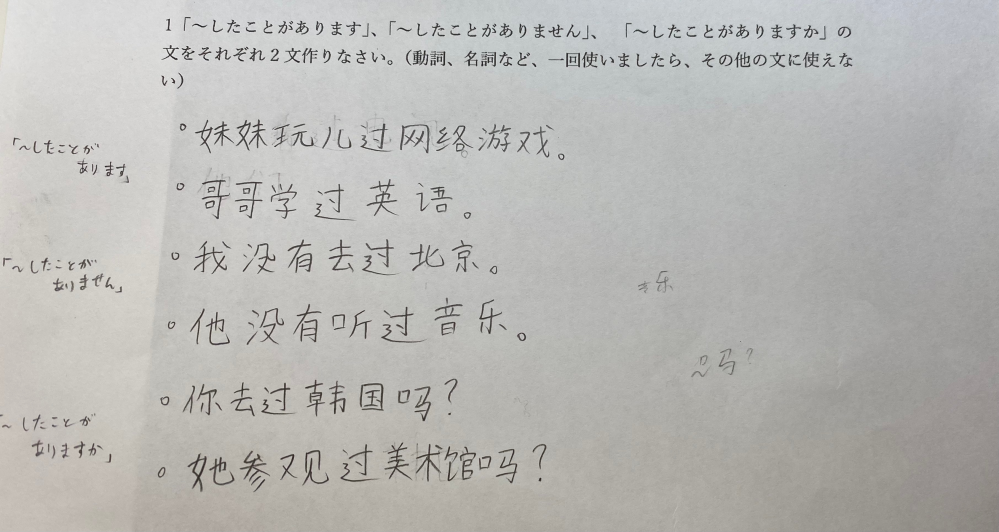 1「～したことがあります」、「～したことがありません」、 「～したことがありますか」の
文をそれぞれ２文作りなさい。（動詞、名詞など、一回使いましたら、その他の文に使えな
い）
「～したことが
あります」
。妹妹玩儿过网络游戏。
。哥哥学过英语。
「～したことが
ありません」
。我没有去过北京。
。他没有听过音乐。
乐
吗?
「～したことが
ありますか」
。你去过韩国吗?
。她参观过美术馆吗?